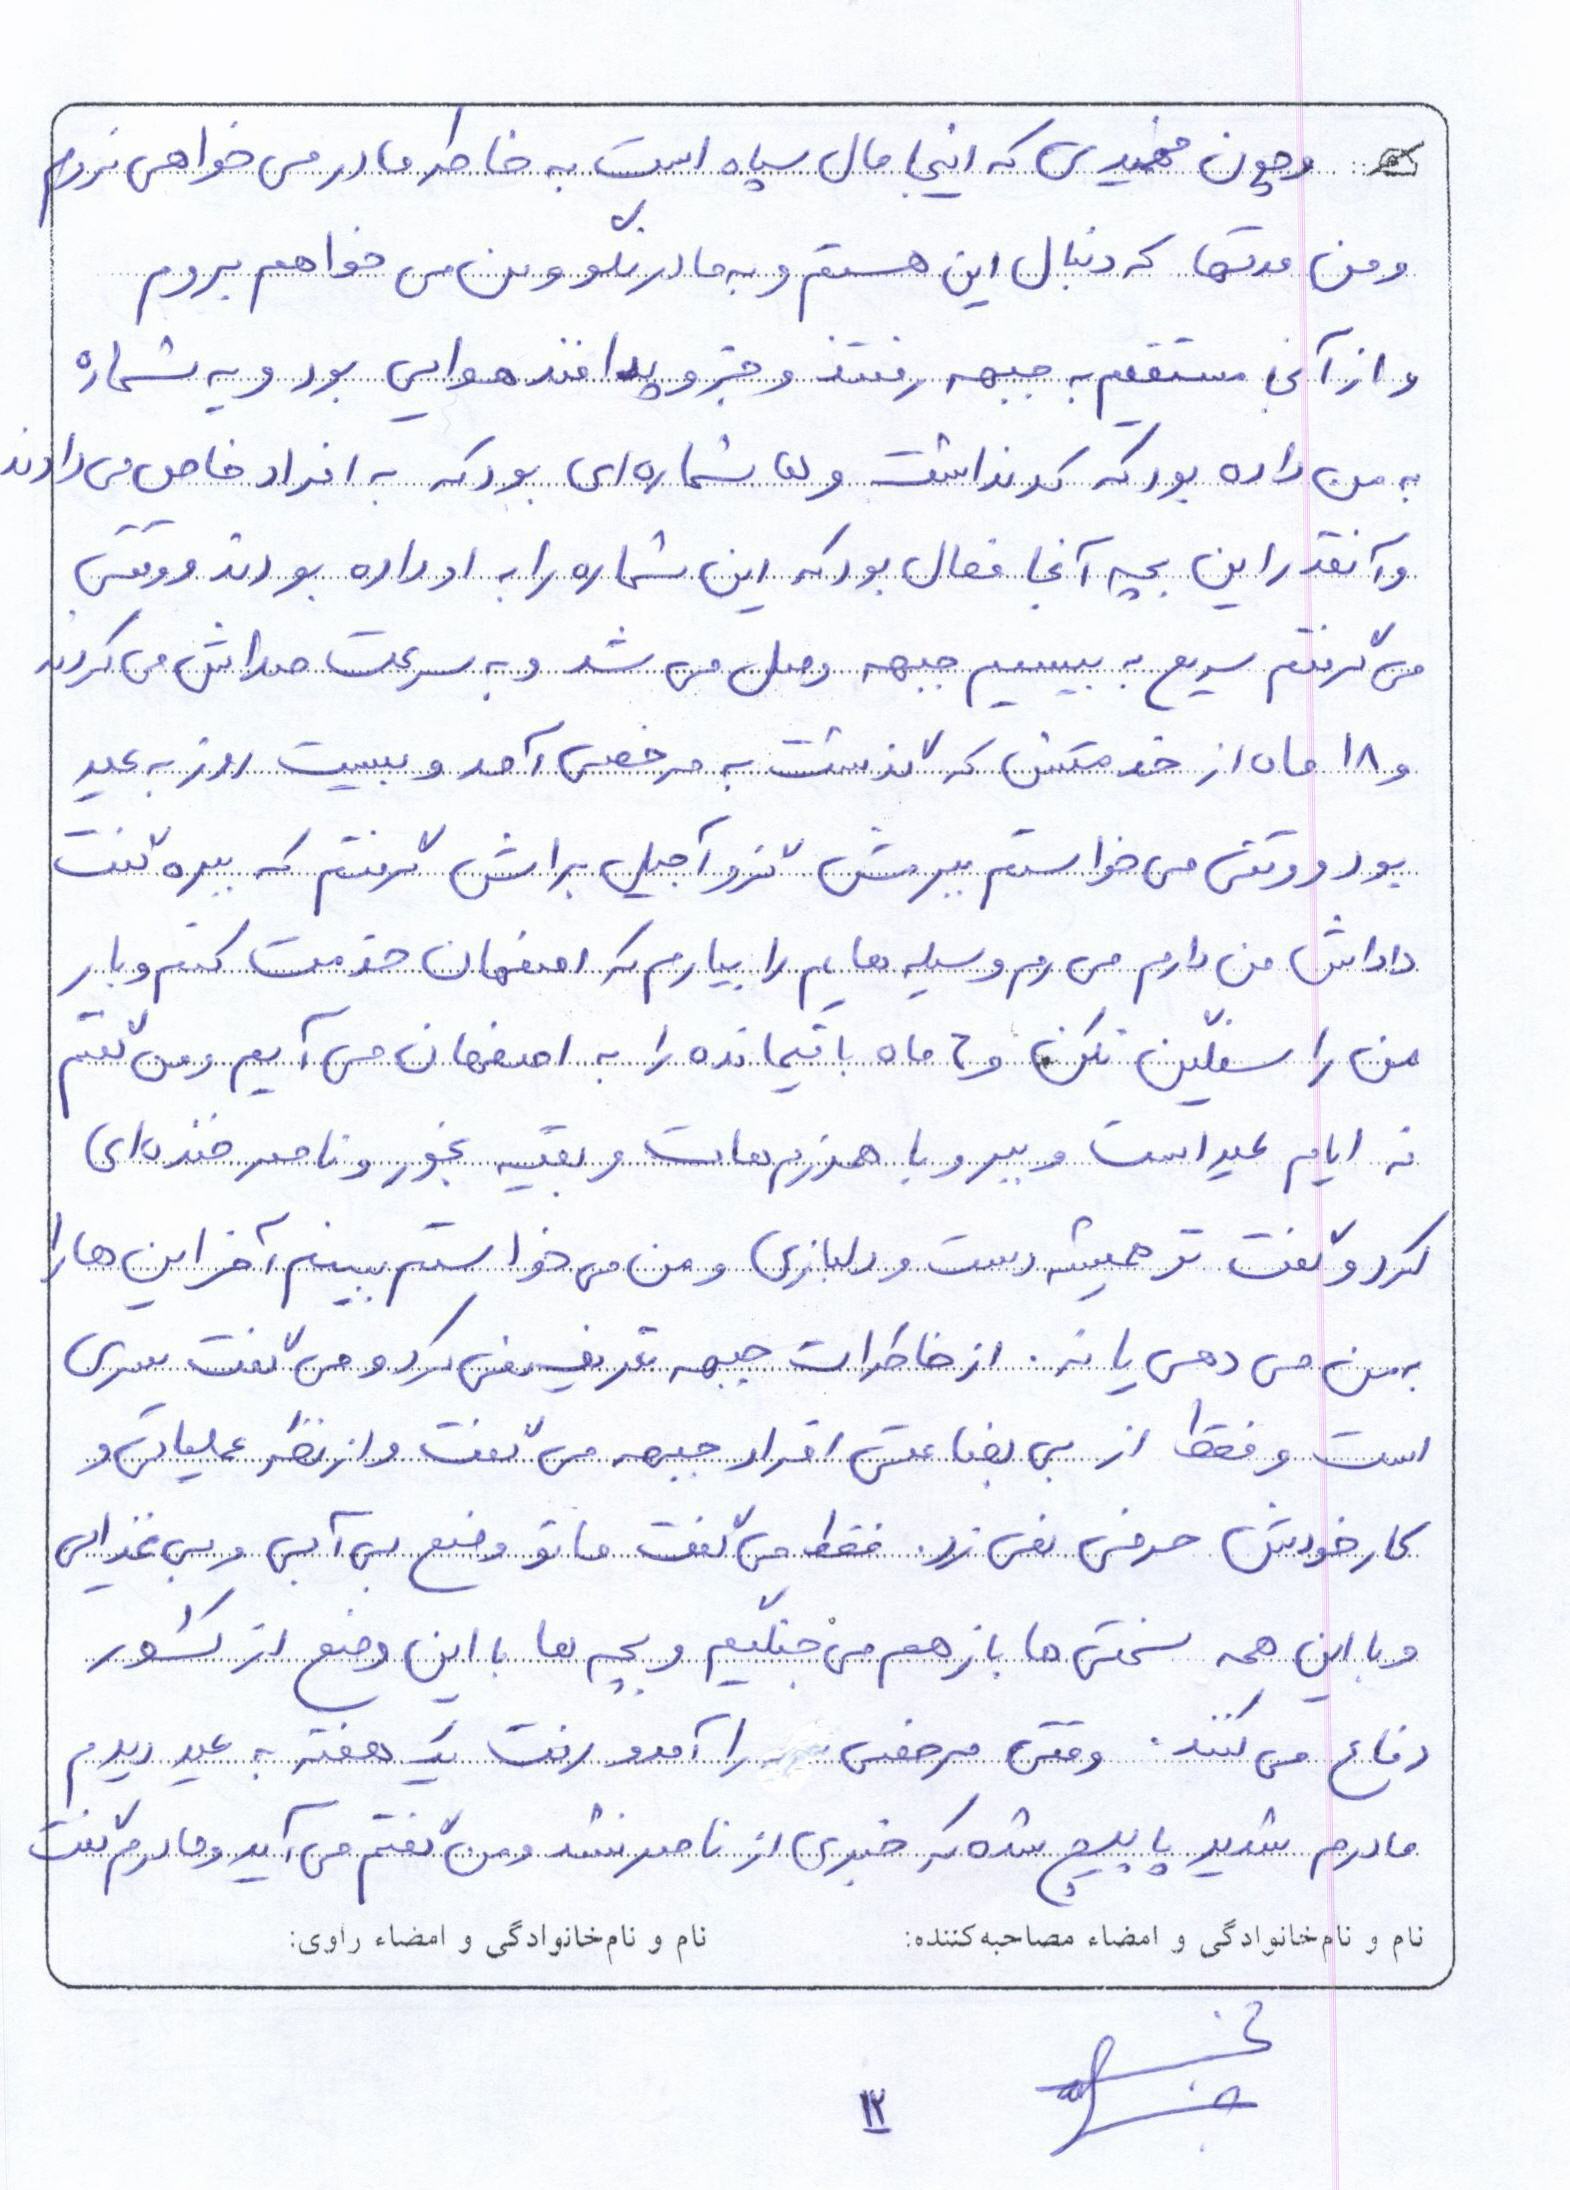 و چون فهمیدی که اینجا مال سپاه است به خاطر مادر می خواهی نروم
و من مدتها که دنبال این هستم و به مادر نگو و من می خواهم بروم
و از آنجا مستقیم به جبهه رفتند و جزو پدافند هوایی بود و یه شماره
به من داده بود که کد نداشت و شماره ای بود که به افراد خاص می دادند
و آنقدر این بچه آنجا فعال بود که این شماره را به او داده بودند و وقتی
می گرفتم سریع به بیسیم جبهه وصل می شد و به سرعت صداش می کردند
و ۱۸ ماه از خدمتش که گذشت به مرخصی آمد و بیست روز به عید
بود و وقتی می خواستم ببرمش گز و آجیل براش گرفتم که ببره گفت
داداش من دارم می رم وسیله هایم را بیارم که اصفهان خدمت کنم و بار
من را سنگین نکن و ۶ ماه باقیمانده را به اصفهان می آیم و من گفتم
نه ایام عید است و ببر و با همرزم هات و بقیه بخور و ناصر خنده ای
کرد و گفت تو همیشه دست و دلبازی و من می خواستم ببینم آخر این ها را
به من می دهی یا نه. از خاطرات جبهه تعریف نمی کرد و می گفت سری
است و فقط از بی بضاعتی افراد جبهه می گفت و از نظر عملیاتی و
کار خودش حرفی نمی زد. فقط می گفت ما تو وضع بی آبی و بی غذایی
و با این همه سختی ها باز هم می جنگیم و بچه ها با این وضع از کشور
دفاع می کنند. وقتی مرخصی را آمد و رفت یک هفته به عید دیدم
مادرم شدید پاپیچ شده که خبری از ناصر نشد و من گفتم می آید و مادرم گفت
نام و نام خانوادگی و امضاء مصاحبه کننده: نام و نام خانوادگی و امضاء راوی:
۱۲